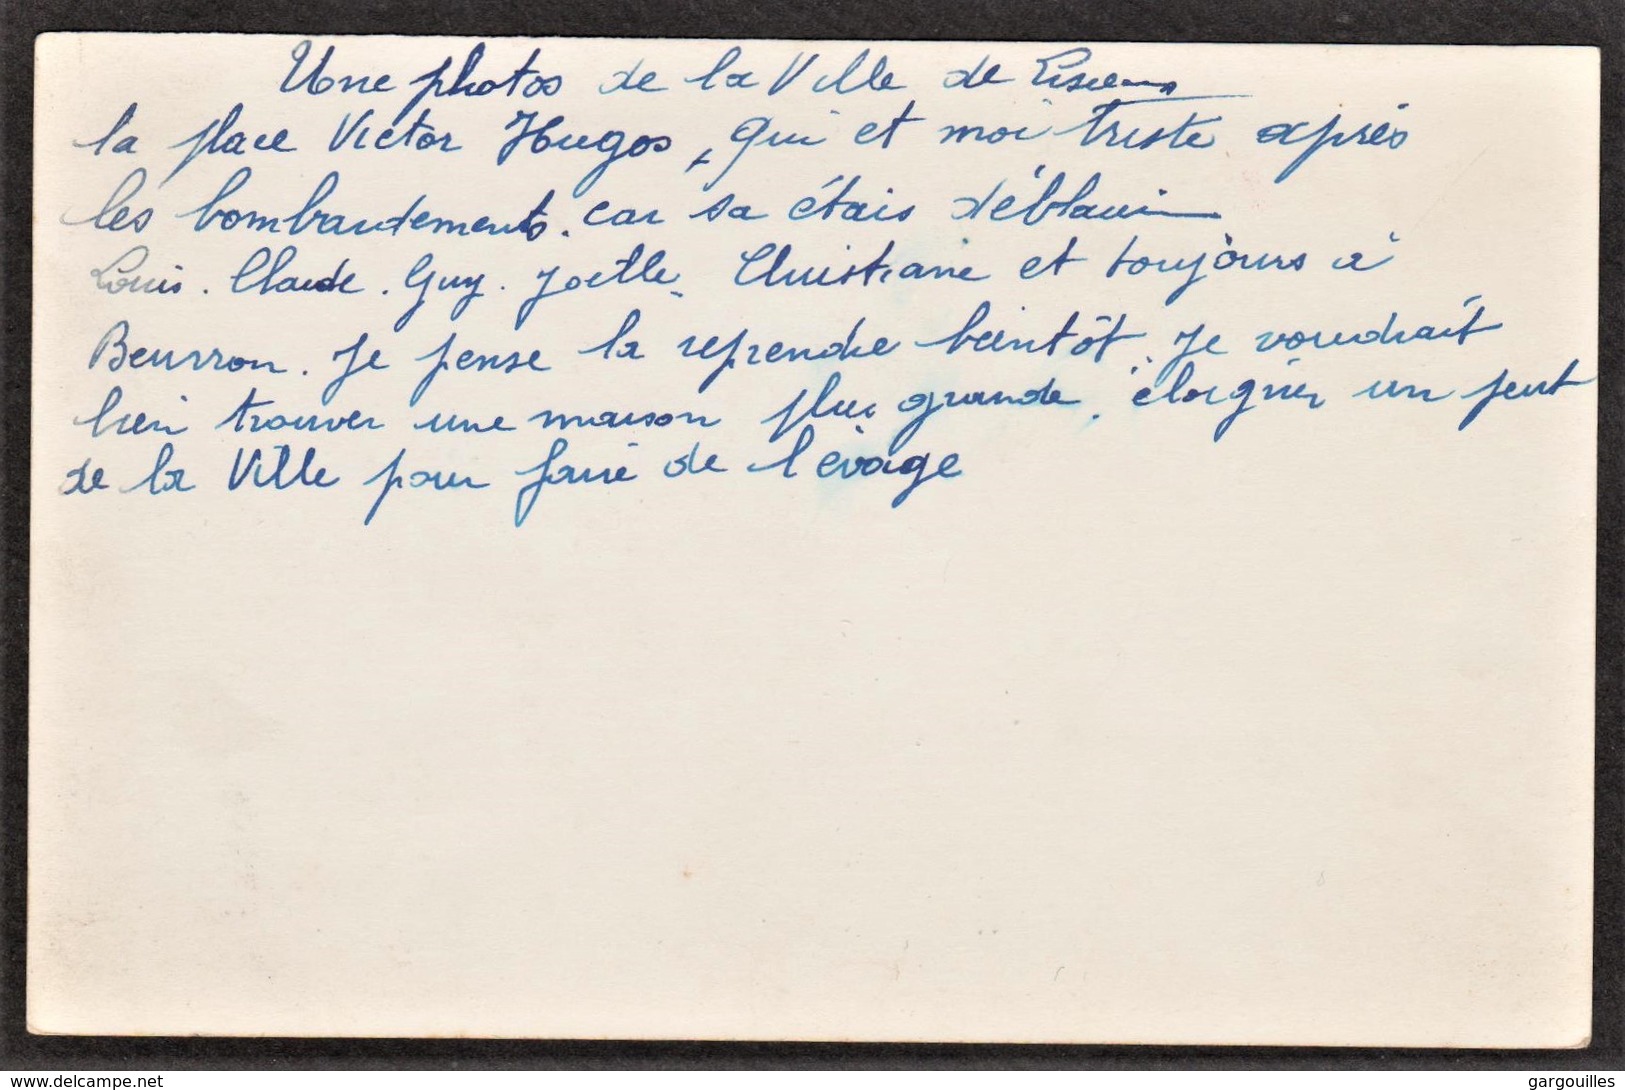 Une photos de la Ville de Lisieux
la place Victor Hugos, qui et moi triste après
les bombardements. car sa étais déblaiii
Louis. Claude. Guy. Joëlle. Christiane et toujours à
Beuvron. Je pense la reprendre beintôt. Je voudrait
bien trouver une maison plus grande. éloignér un peut
de la Ville pour faire de l'évage
delcampe.net
gargouilles